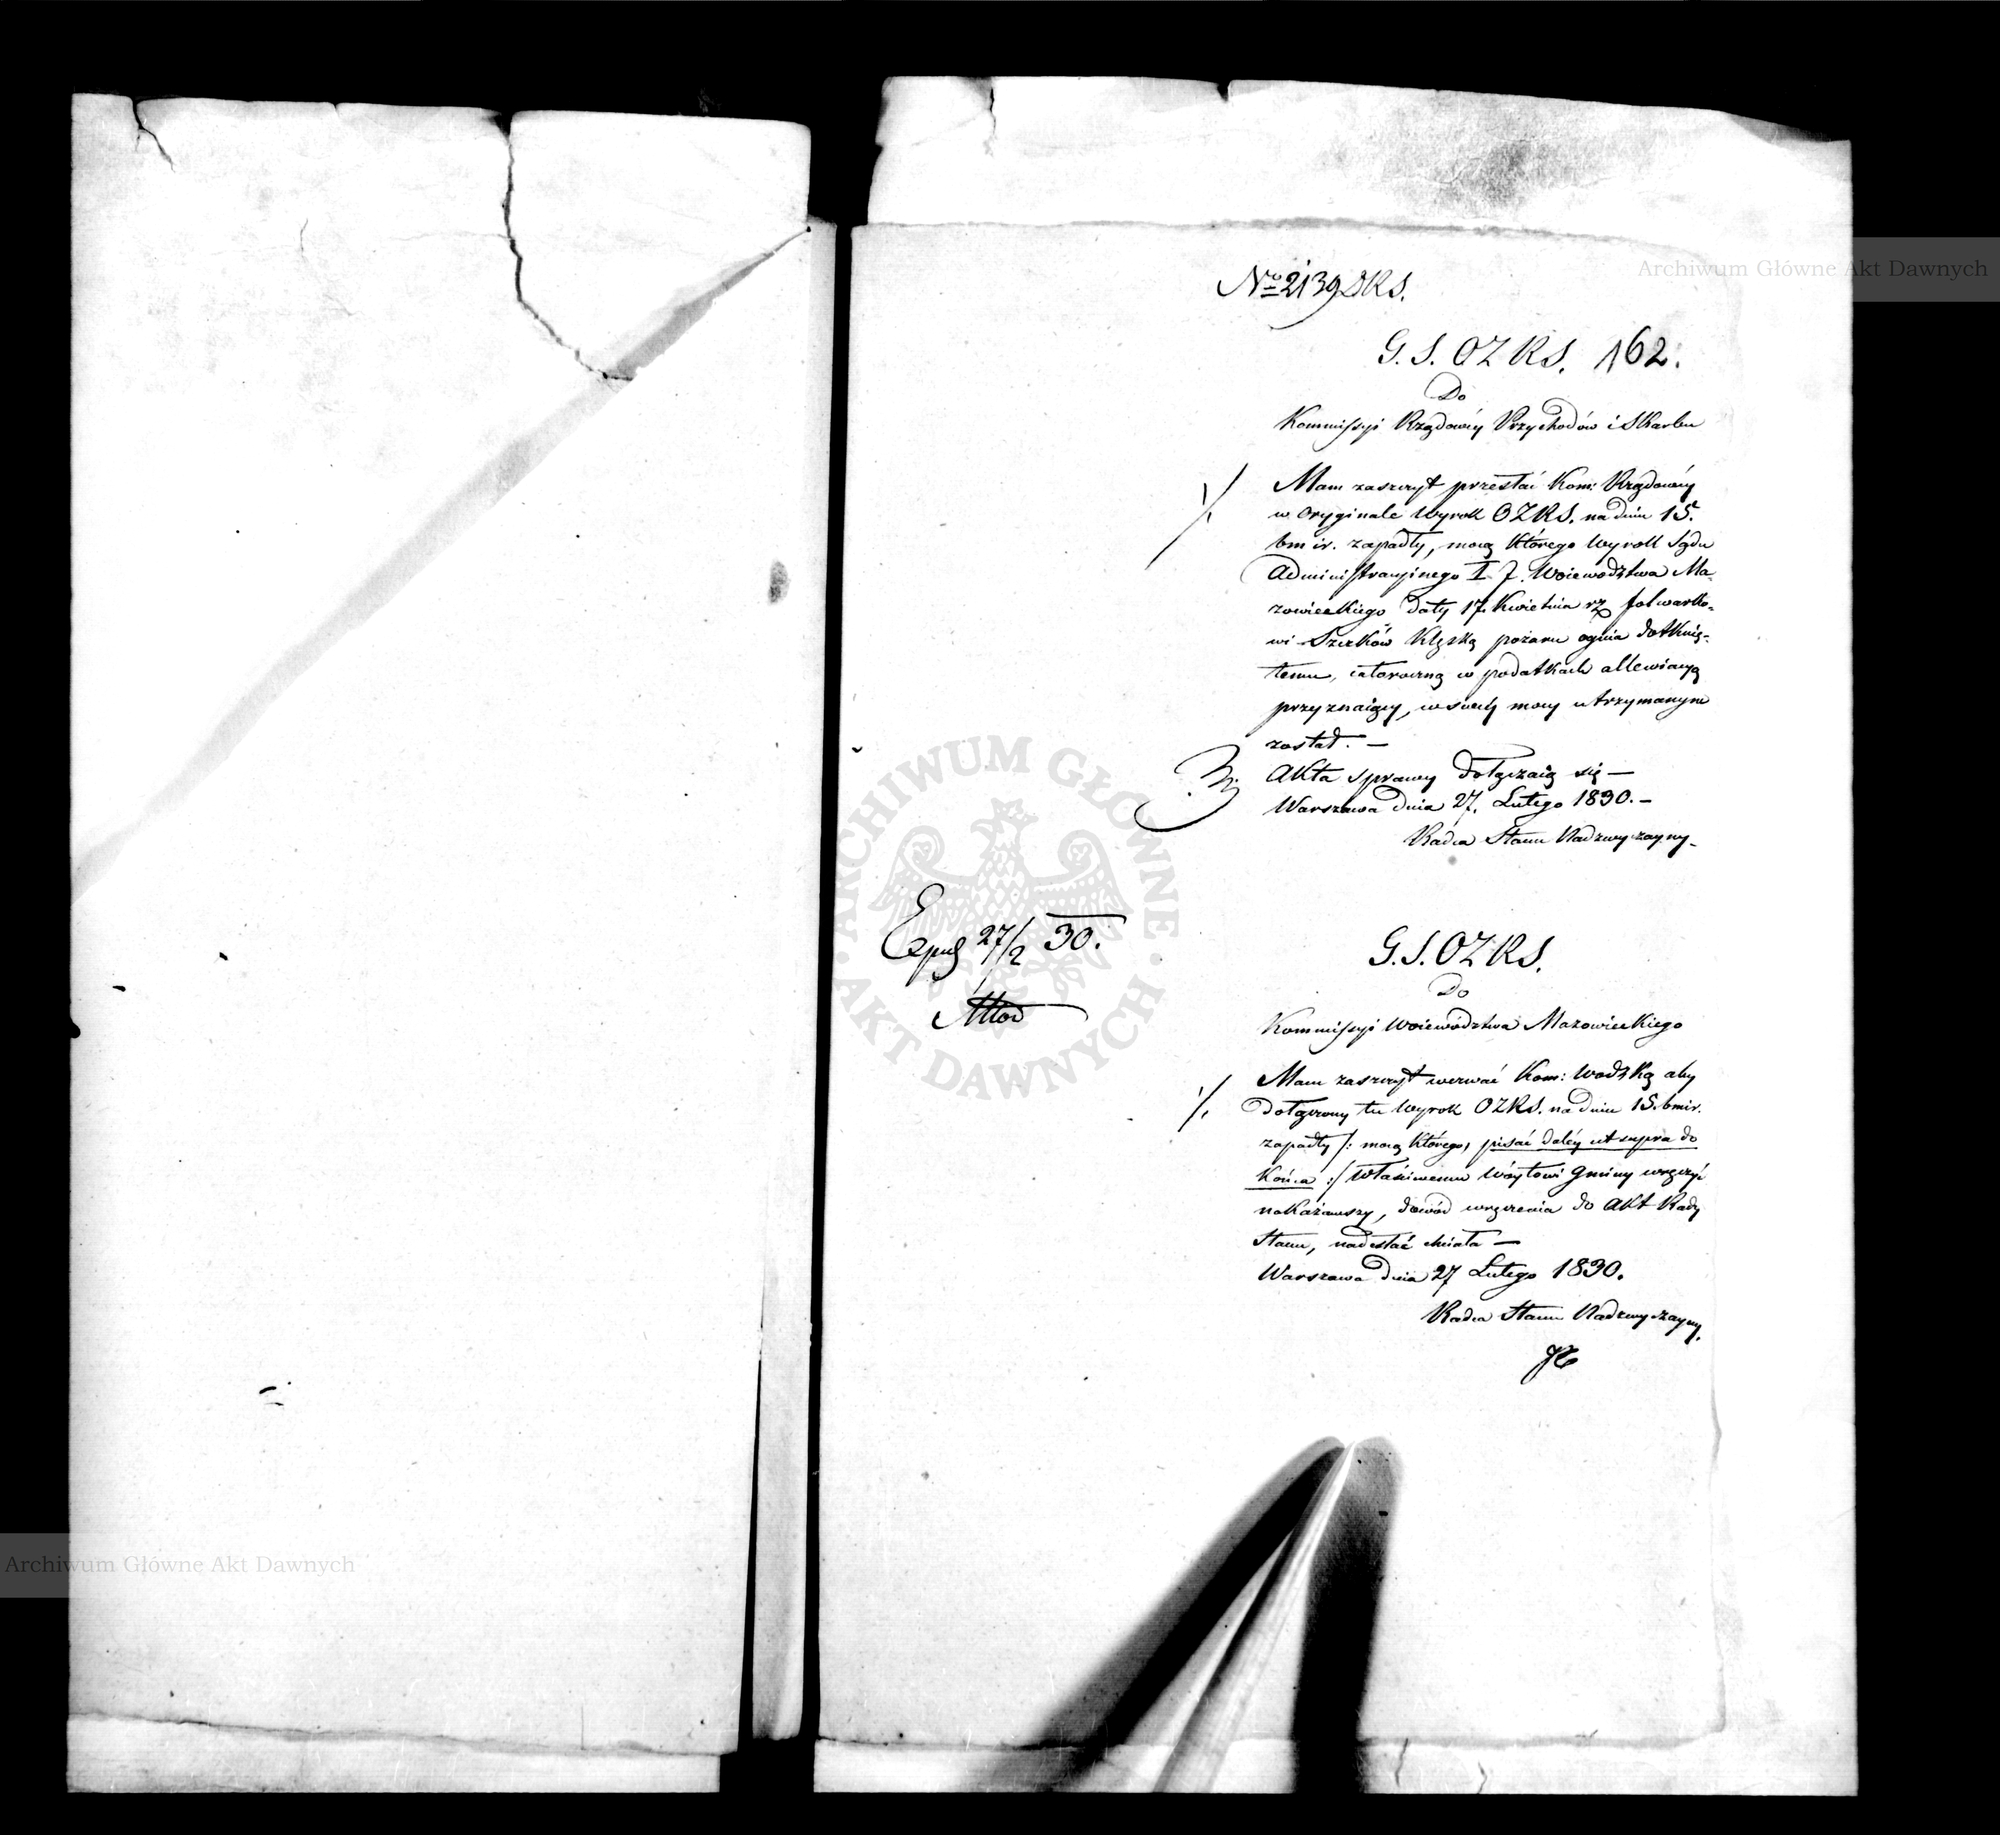 No 2139 DKS.
G. S. OZKS. 162.
Do
Kommissyi Rządowéy Przychodów i Skarbu
Mam zaszczyt przesłać Kom: Rządowéy
w oryginale Wyrok OZKS. na dniu 15.
bm ir. zapadły, mocą którego Wyrok Sądu
Administracyinego I J. Woiewodztwa Ma-
zowieckiego daty 17 Kwietnia rz folwarko-
wi Szczków klęską pożaru ognia dotknię-
temu, całoroczną w podatkach allewiacyą
przyznaiący, w swéy mocy utrzymanym
został. —
Akta sprawy dołączaią się —
Warszawa dnia 27. Lutego 1830. —
Radca Stanu Nadzwyczayny
Exped 27/2 30.
G. S. OZKS.
Do
Kommissyi Woiewództwa Mazowieckiego
Mam zaszczyt wezwać Kom: Wodzką aby
dołączony tu Wyrok OZKS. na dniu 15. bmir.
zapadły /: mocą którego, pisać daléy ut supra do
końca :/ Właściwemu Wóytowi Gminy wręczyć
nakazawszy, dowód wręczenia do Akt Rady
Stanu, nadesłać chciała —
Warszawa dnia 27 Lutego 1830.
Radca Stanu Nadzwyczayny.
Archiwum Główne Akt Dawnych
ARCHIWUM GŁÓWNE
AKT DAWNYCH
Archiwum Główne Akt Dawnych